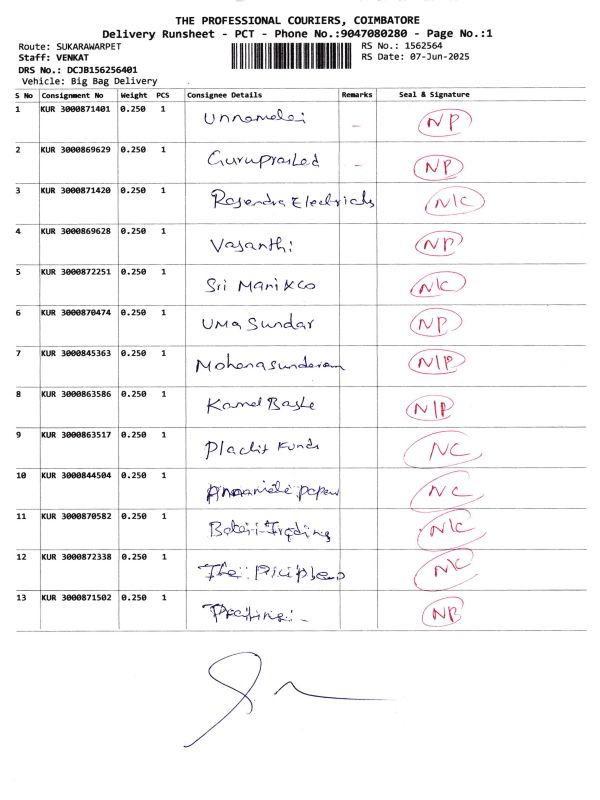 THE PROFESSIONAL COURIERS, COIMBATORE
Delivery Runsheet - PCT - Phone No.:9047080280 - Page No.:1
Route: SUKARAWARPET RS No.: 1562564
Staff: VENKAT RS Date: 07-Jun-2025
DRS No.: DCJB156256401
Vehicle: Big Bag Delivery
S No Consignment No Weight PCS Consignee Details Remarks Seal & Signature
1 KUR 3000871401 0.250 1 Unnamalai – NP
2 KUR 3000869629 0.250 1 Guruprasad – NP
3 KUR 3000871420 0.250 1 Rajendra Electricals N/C
4 KUR 3000869628 0.250 1 Vasanthi NP
5 KUR 3000872251 0.250 1 Sri Mani & Co N/C
6 KUR 3000870474 0.250 1 Uma Sundar NP
7 KUR 3000845363 0.250 1 Mohanasundaram N/P
8 KUR 3000863586 0.250 1 Kamal N/P
9 KUR 3000863517 0.250 1 Funds NC
10 KUR 3000844504 0.250 1 NC
11 KUR 3000870582 0.250 1 Trading N/C
12 KUR 3000872338 0.250 1 The N/C
13 KUR 3000871502 0.250 1 NP